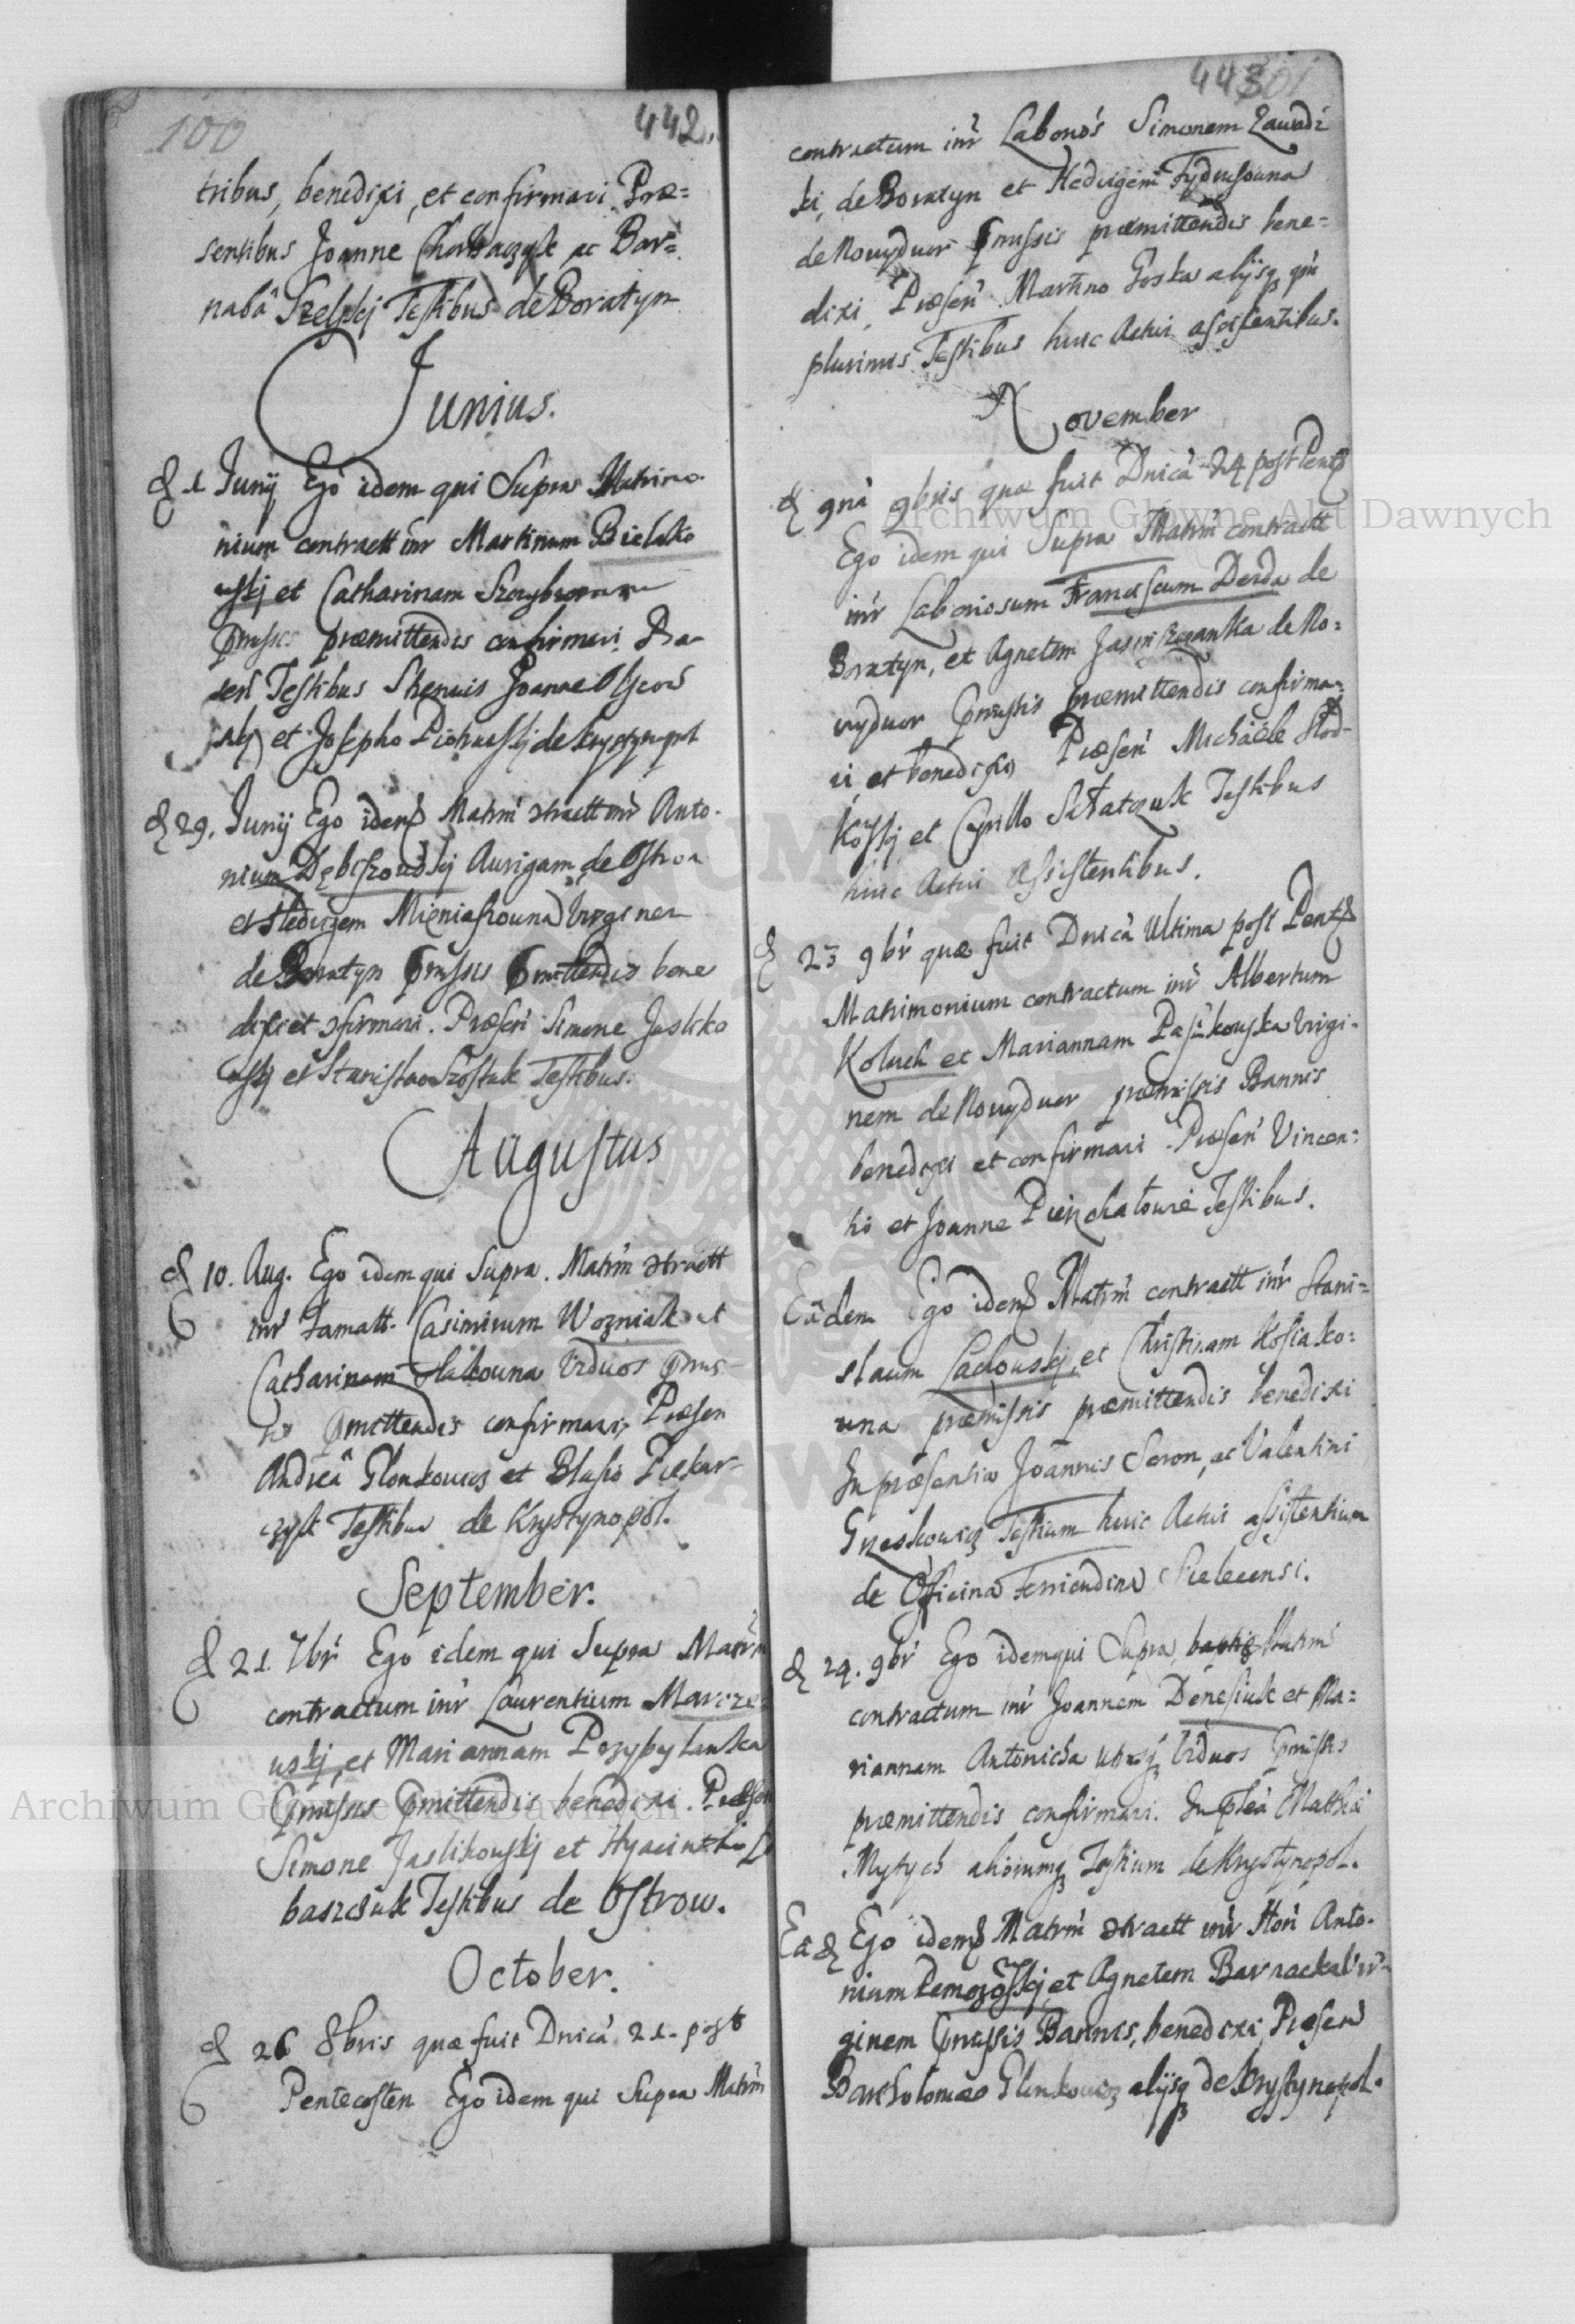 100
442.
tribus, benedixi, et confirmavi Præ=
sentibus Joanne ac Bar=
nabâ Szelskj Testibus de Boratyn
Junius.
d 1 Junij Ego idem qui Supra Matrimo
nium contractt inr Martinum Bielako
uskj et Catharinam
præmittendis confirmavi. Præ
sen Testibus Strenuis Joanne
skj et Josepho de Krystynopol
d 29. Junij Ego idem Matrm ɔtractt inr Anto-
nium Dębiszouskj Aurigam de Ostrow
et Hedvigem Mieniaszouna Virginem
de Boratyn pmissis pmittendis bene
dixi et ɔfirmavi. Præsen Simone Jasliko
uskj et Stanislao Szostak Testibus.
Augustus
d 10. Aug. Ego idem qui Supra. Matrm ɔtractt
inr Famatt. Casimirum Wozniak et
Catharinam Viduos pmis
sis pmittendis confirmavi, Præsen
Andreâ Glonkowicz et Blasio Piekar=
czyk Testibus de Krystynopol.
September.
d 21. 7br Ego idem qui Supra Matrm
contractum inr Laurentium Marcze=
uskj, et Mariannam Przybylenska
pmissis pmittendis benedixi. Præsen
Simone Jaslikouskj et Hyacintho
baszczuk Testibus de Ostrow.
October.
d 26 8bris quæ fuit Dnica 21. post
Pentecosten Ego idem qui Supra Matrm
443
101
contractum inr Labonos Simonem Zawadz
ki, de Boratyn et Hedvigem
de Nouydwor pmissis præmittendis bene=
dixi, Præsen Martino Goska alijsq qm
plurimis Testibus huic Actui assistentibus.
November
d 9na 9bris quæ fuit Dnica 24 post Pent
Ego idem qui Supra Matrm contractt
inr Laboriosum Franciscum Derda de
Boratyn, et Agnetem Jasinszczanka de No=
vydwor pmissis præmittendis confirma=
vi et benedixi, Præsen Michaële Stod-
koskj et Cyrillo Testibus
huic Actui Assistentibus.
d 23 9br quæ fuit Dnica Ultima post Pent
Matrimonium contractum inr Albertum
Koluch et Mariannam Paszkouska Virgi-
nem de Nouydwor præmissis Bannis
benedixi et confirmavi. Præsen Vincen=
tio et Joanne Testibus.
Eâdem Ego idem Matrm contractt inr Stani=
slaum Lachouskj, et Christinam Kosiako=
una præmissis præmittendis benedixi
In præsentia Joannis Seron, ac Valentini
Testium huic Actui assistentium
de Officina Sielecensi.
d 24. 9br Ego idem qui Supra Matrm
contractum inr Joannem Denesiuk et Ma=
riannam Antonicha utrosq Viduos pmissis
præmittendis confirmavi. In Matthiæ
Mytych aliorumq Testium de Krystynopol.
Eâ d Ego idem Matrm ɔtractt inr Hon Anto-
nium et Agnetem Barnacka Vir-
ginem pmissis Bannis, benedixi Præsen
Bartholomæo Glonkowicz alijsq de Krystynopol.
Archiwum Główne Akt Dawnych